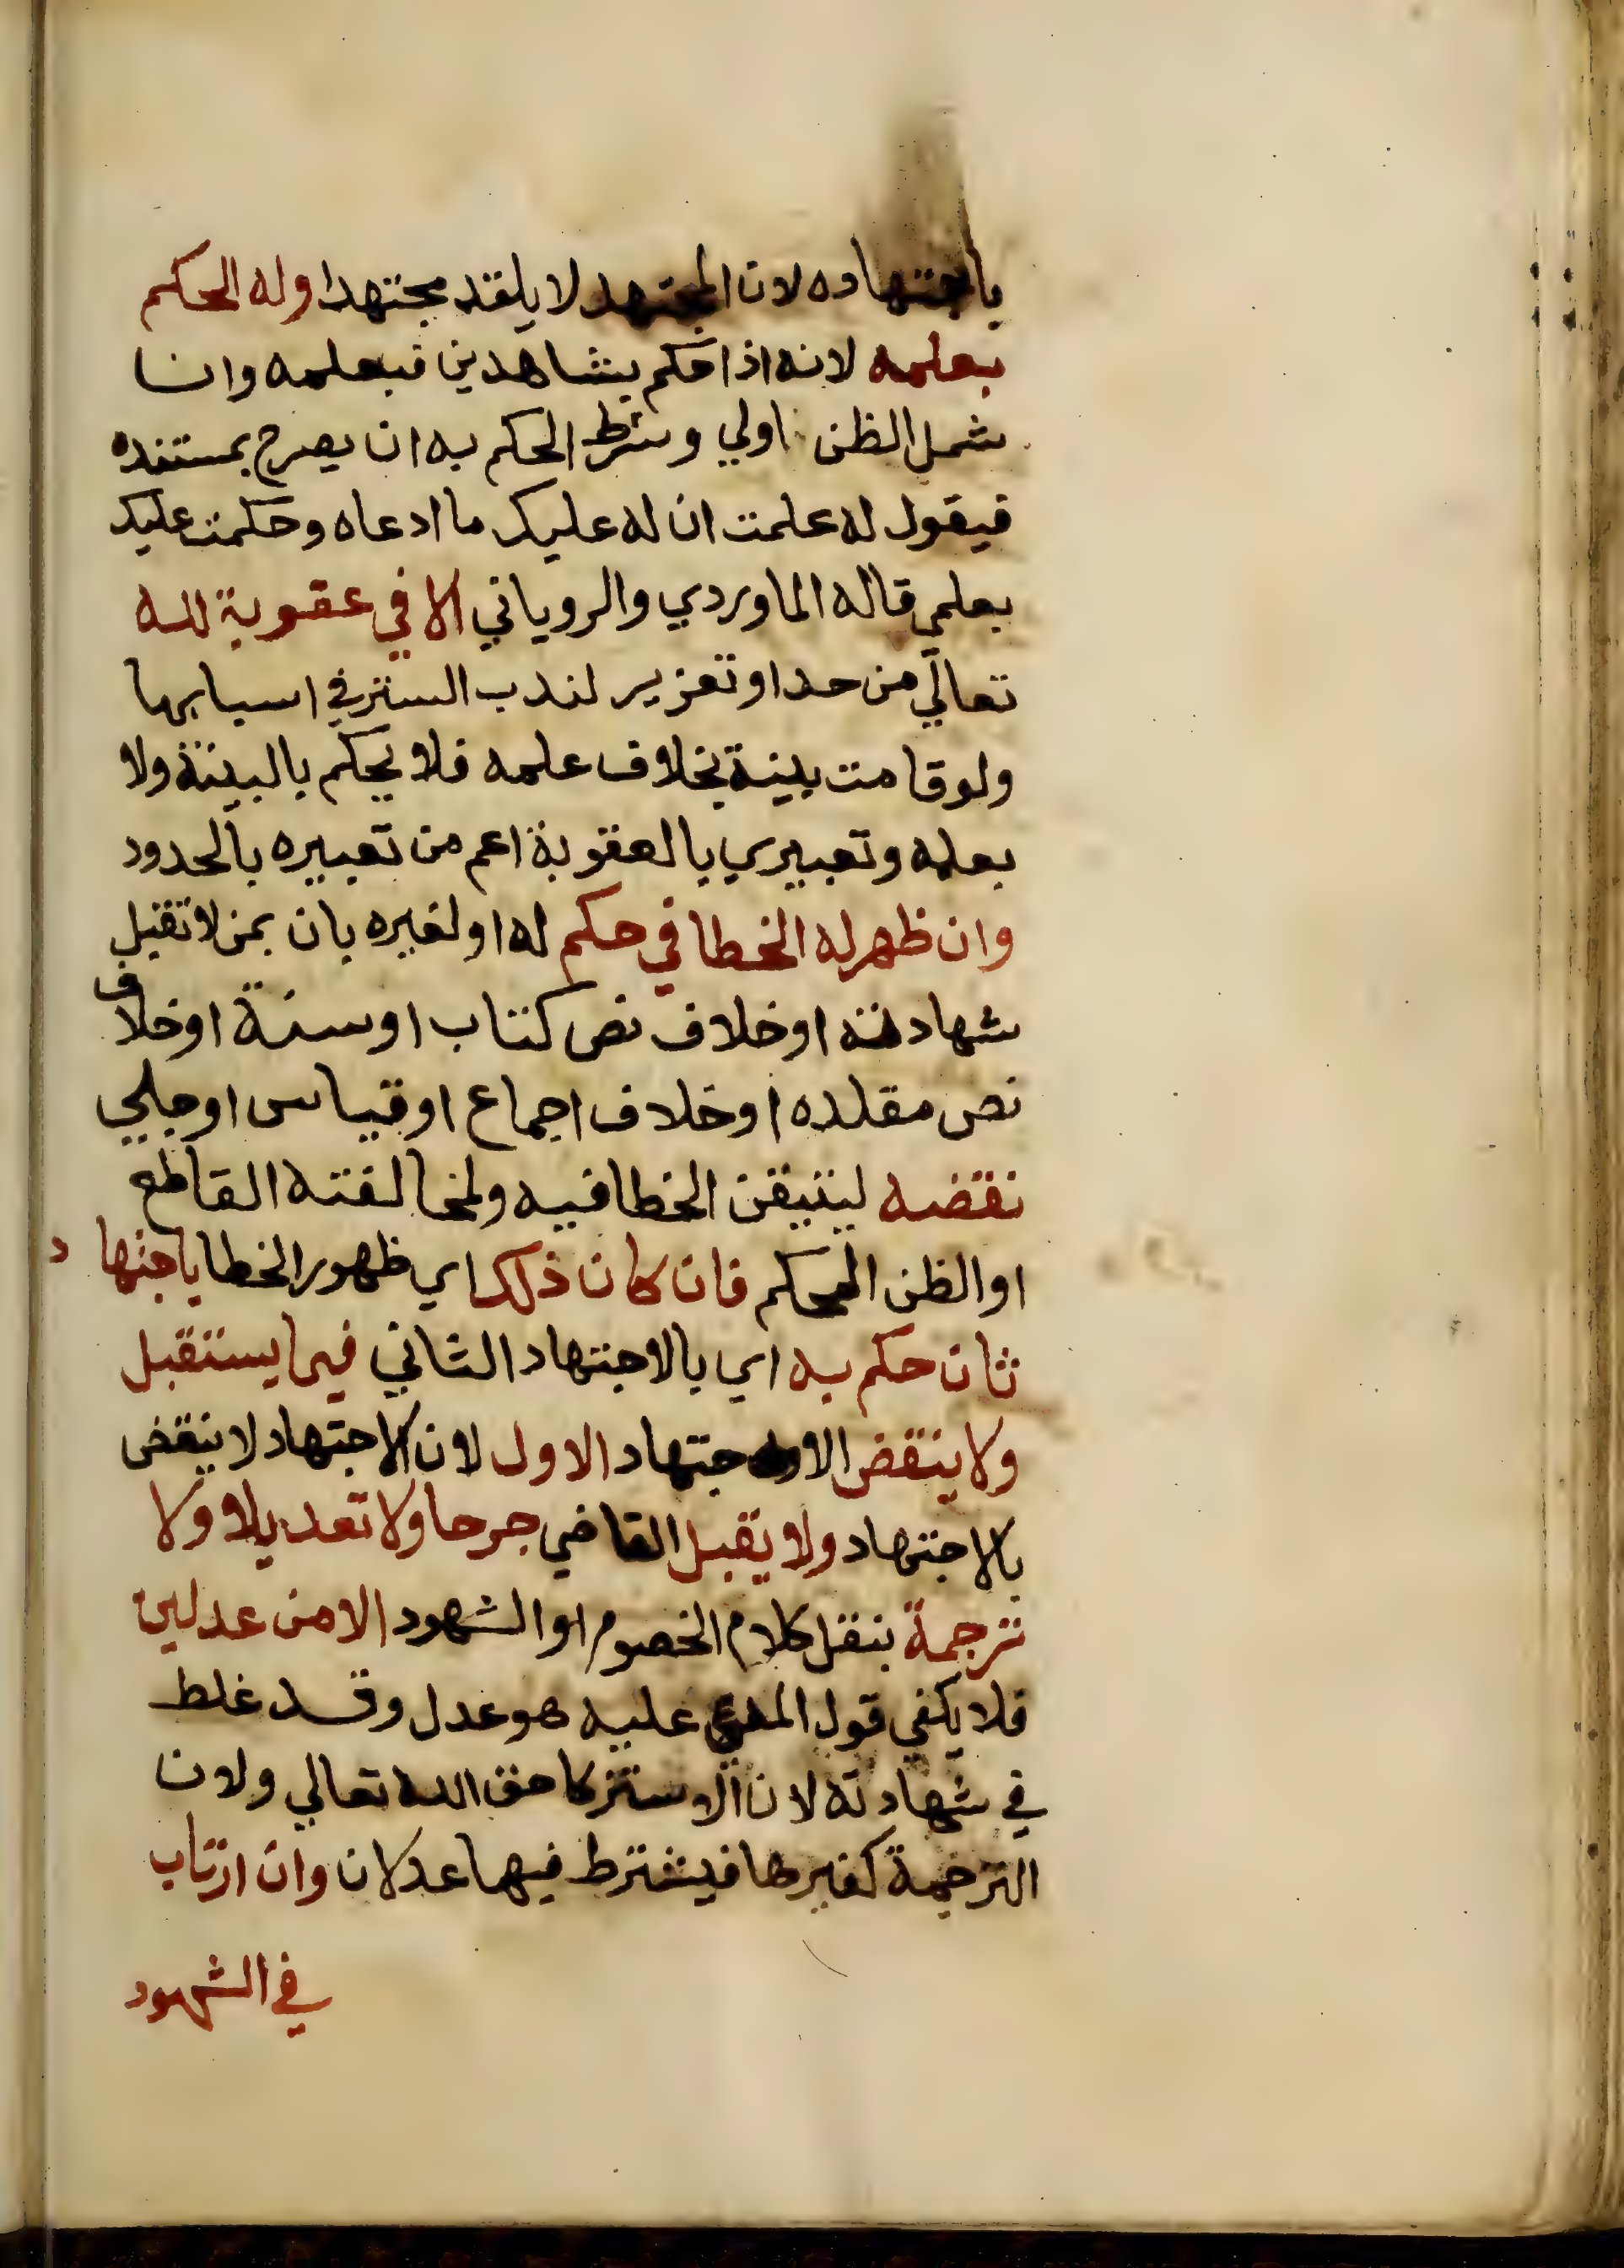 باجتهاده لان المجتهد لا يلقد مجتهدا وله الحكم
بعلمه لانه اذا حكم بشاهدين فبعلمه وان
شمل الظن اولي وشرط الحكم به ان يصرح بمستنده
فيقول له علمت ان له عليك ما ادعاه وحكمت عليك
بعلمي قاله الماوردي والروياني الا في عقوبة لله
تعالي من حد او تعزير لندب الستر في اسبابها
ولو قامت بينة بخلاف علمه فلا يحكم بالبينة ولا
بعلمه وتعبيري بالعقوبة اعم من تعبيره بالحدود
وان ظهر له الخطا في حكم له او لغيره بان بمن لا تقبل
شهادته او خلاف نص كتاب او سنة او خلاف
نص مقلده او خلاف اجماع او قياس او جلي
نقضه ليتيقن الخطا فيه ولمخالفته القاطع
او الظن المحكم فان كان ذلك اي ظهور الخطا باجتهاد
ثان حكم به اي بالاجتهاد الثاني فيما يستقبل
ولا ينقض الاجتهاد الاول لان الاجتهاد لا ينقض
بالاجتهاد ولا يقبل القاضي جرحا ولا تعديلا ولا
ترجمة بنقل كلام الخصوم او الشهود الا من عدلين
فلا يكفي قول المدعي عليه هو عدل وقد غلط
في شهادته لان الاستزكا حق الله تعالي ولان
الترجمة كغيرها فيشترط فيها عدلان وان ارتاب
في الشهود